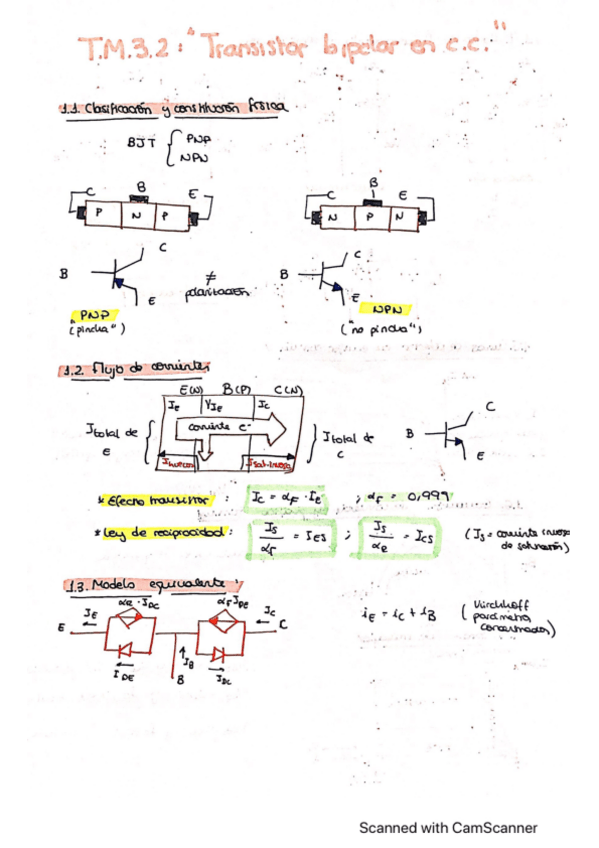 T.M.3.2: "Transistor bipolar en c.c."
1.1. Clasificación y constitución física
BJT { PNP
NPN
C B E
P N P
C B E
N P N
B C E
≠
polarización
B C E
PNP
("pincha")
NPN
("no pincha")
1.2. Flujo de corrientes
E(N) B(P) C(N)
IE IC
Itotal de E
corriente e-
Itotal de C
Isat-inversa
B C E
* Efecto transistor : IC = αF · IE ; αF = 0,999
* Ley de reciprocidad : IS/αF = IES ; IS/αR = ICS (IS = corriente inversa
de saturación)
1.3. Modelo equivalente
αR · IDC αF IDE
E IE IC C
IDE IB IDC
B
iE = iC + iB (Kirchhoff
parámetros
concentrados)
Scanned with CamScanner